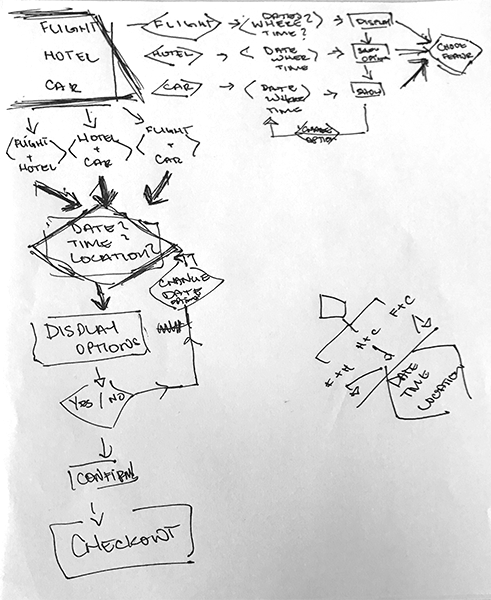 FLIGHT
HOTEL
CAR
FLIGHT
DATE?
WHERE?
TIME?
DISPLAY
HOTEL
DATE
WHERE
TIME
OPTION
CHOOSE
CAR
DATE
WHERE
TIME
SHOW
CHANGE
OPTION
FLIGHT
+
HOTEL
HOTEL
+
CAR
FLIGHT
+
CAR
DATE?
TIME?
LOCATION?
CHANGE
DATE
DISPLAY
OPTIONS
YES / NO
CONFIRM
CHECKOUT
F+H
H+C
F+C
DATE
TIME
LOCATION